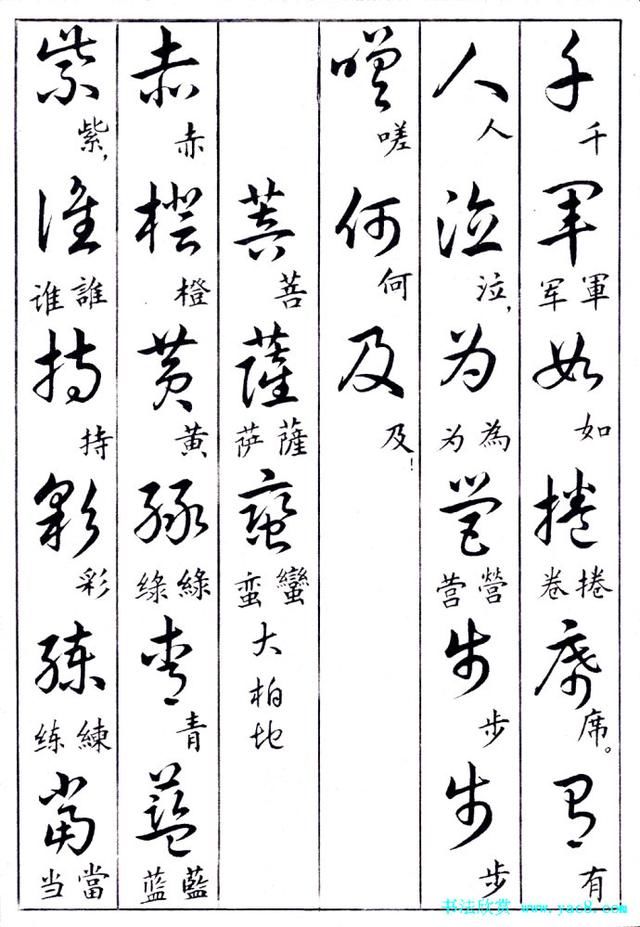 千軍如捲席有
千 軍军 如 捲卷 席。 有
人泣为营步步
人 泣, 為为 營营 步 步
嗟何及
嗟 何 及!
菩薩蛮
菩 薩萨 蠻蛮 大柏地
赤橙黄绿青蓝
赤 橙 黄 綠绿 青 藍蓝
紫谁持彩练当
紫, 誰谁 持 彩 練练 當当
书法欣赏 www.yac8.com